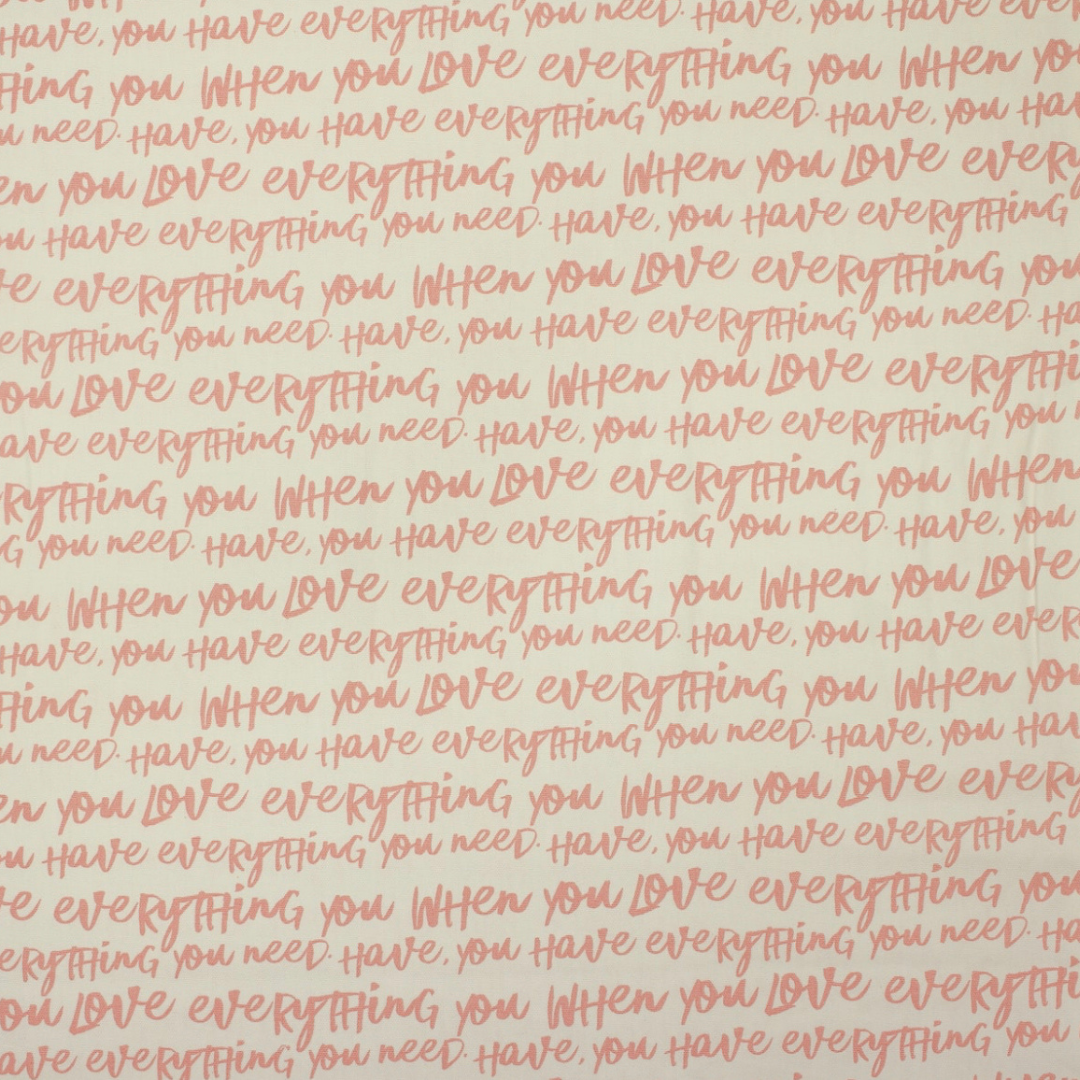 Have, you Have everyTHing you need. Have, you Have
THing you WHen you Love everyTHing you WHen
need. Have, you Have everyTHing you need. Have, you
you Love everyTHing you WHen you Love
Have everyTHing you need. Have, you Have everyTHing
everyTHing you WHen you Love everyTHing you
everyTHing you need. Have, you Have everyTHing you need.
you Love everyTHing you WHen you Love
ave everyTHing you need. Have, you Have everyTHing you
ryTHing you WHen you Love everyTHing you WHen
G you need. Have, you Have everyTHing you need. Have, you
ou WHen you Love everyTHing you WHen you Love
Have, you Have everyTHing you need. Have, you Have ever
THing you WHen you Love everyTHing you WHen
need. Have, you Have everyTHing you need. Have, you
en you Love everyTHing you WHen you Love every
Have everyTHing you need. Have, you Have everyTHing
everyTHing you WHen you Love everyTHing you
everyTHing you need. Have, you Have everyTHing you need.
you Love everyTHing you WHen you Love
ave everyTHing you need. Have, you Have everyTHing you